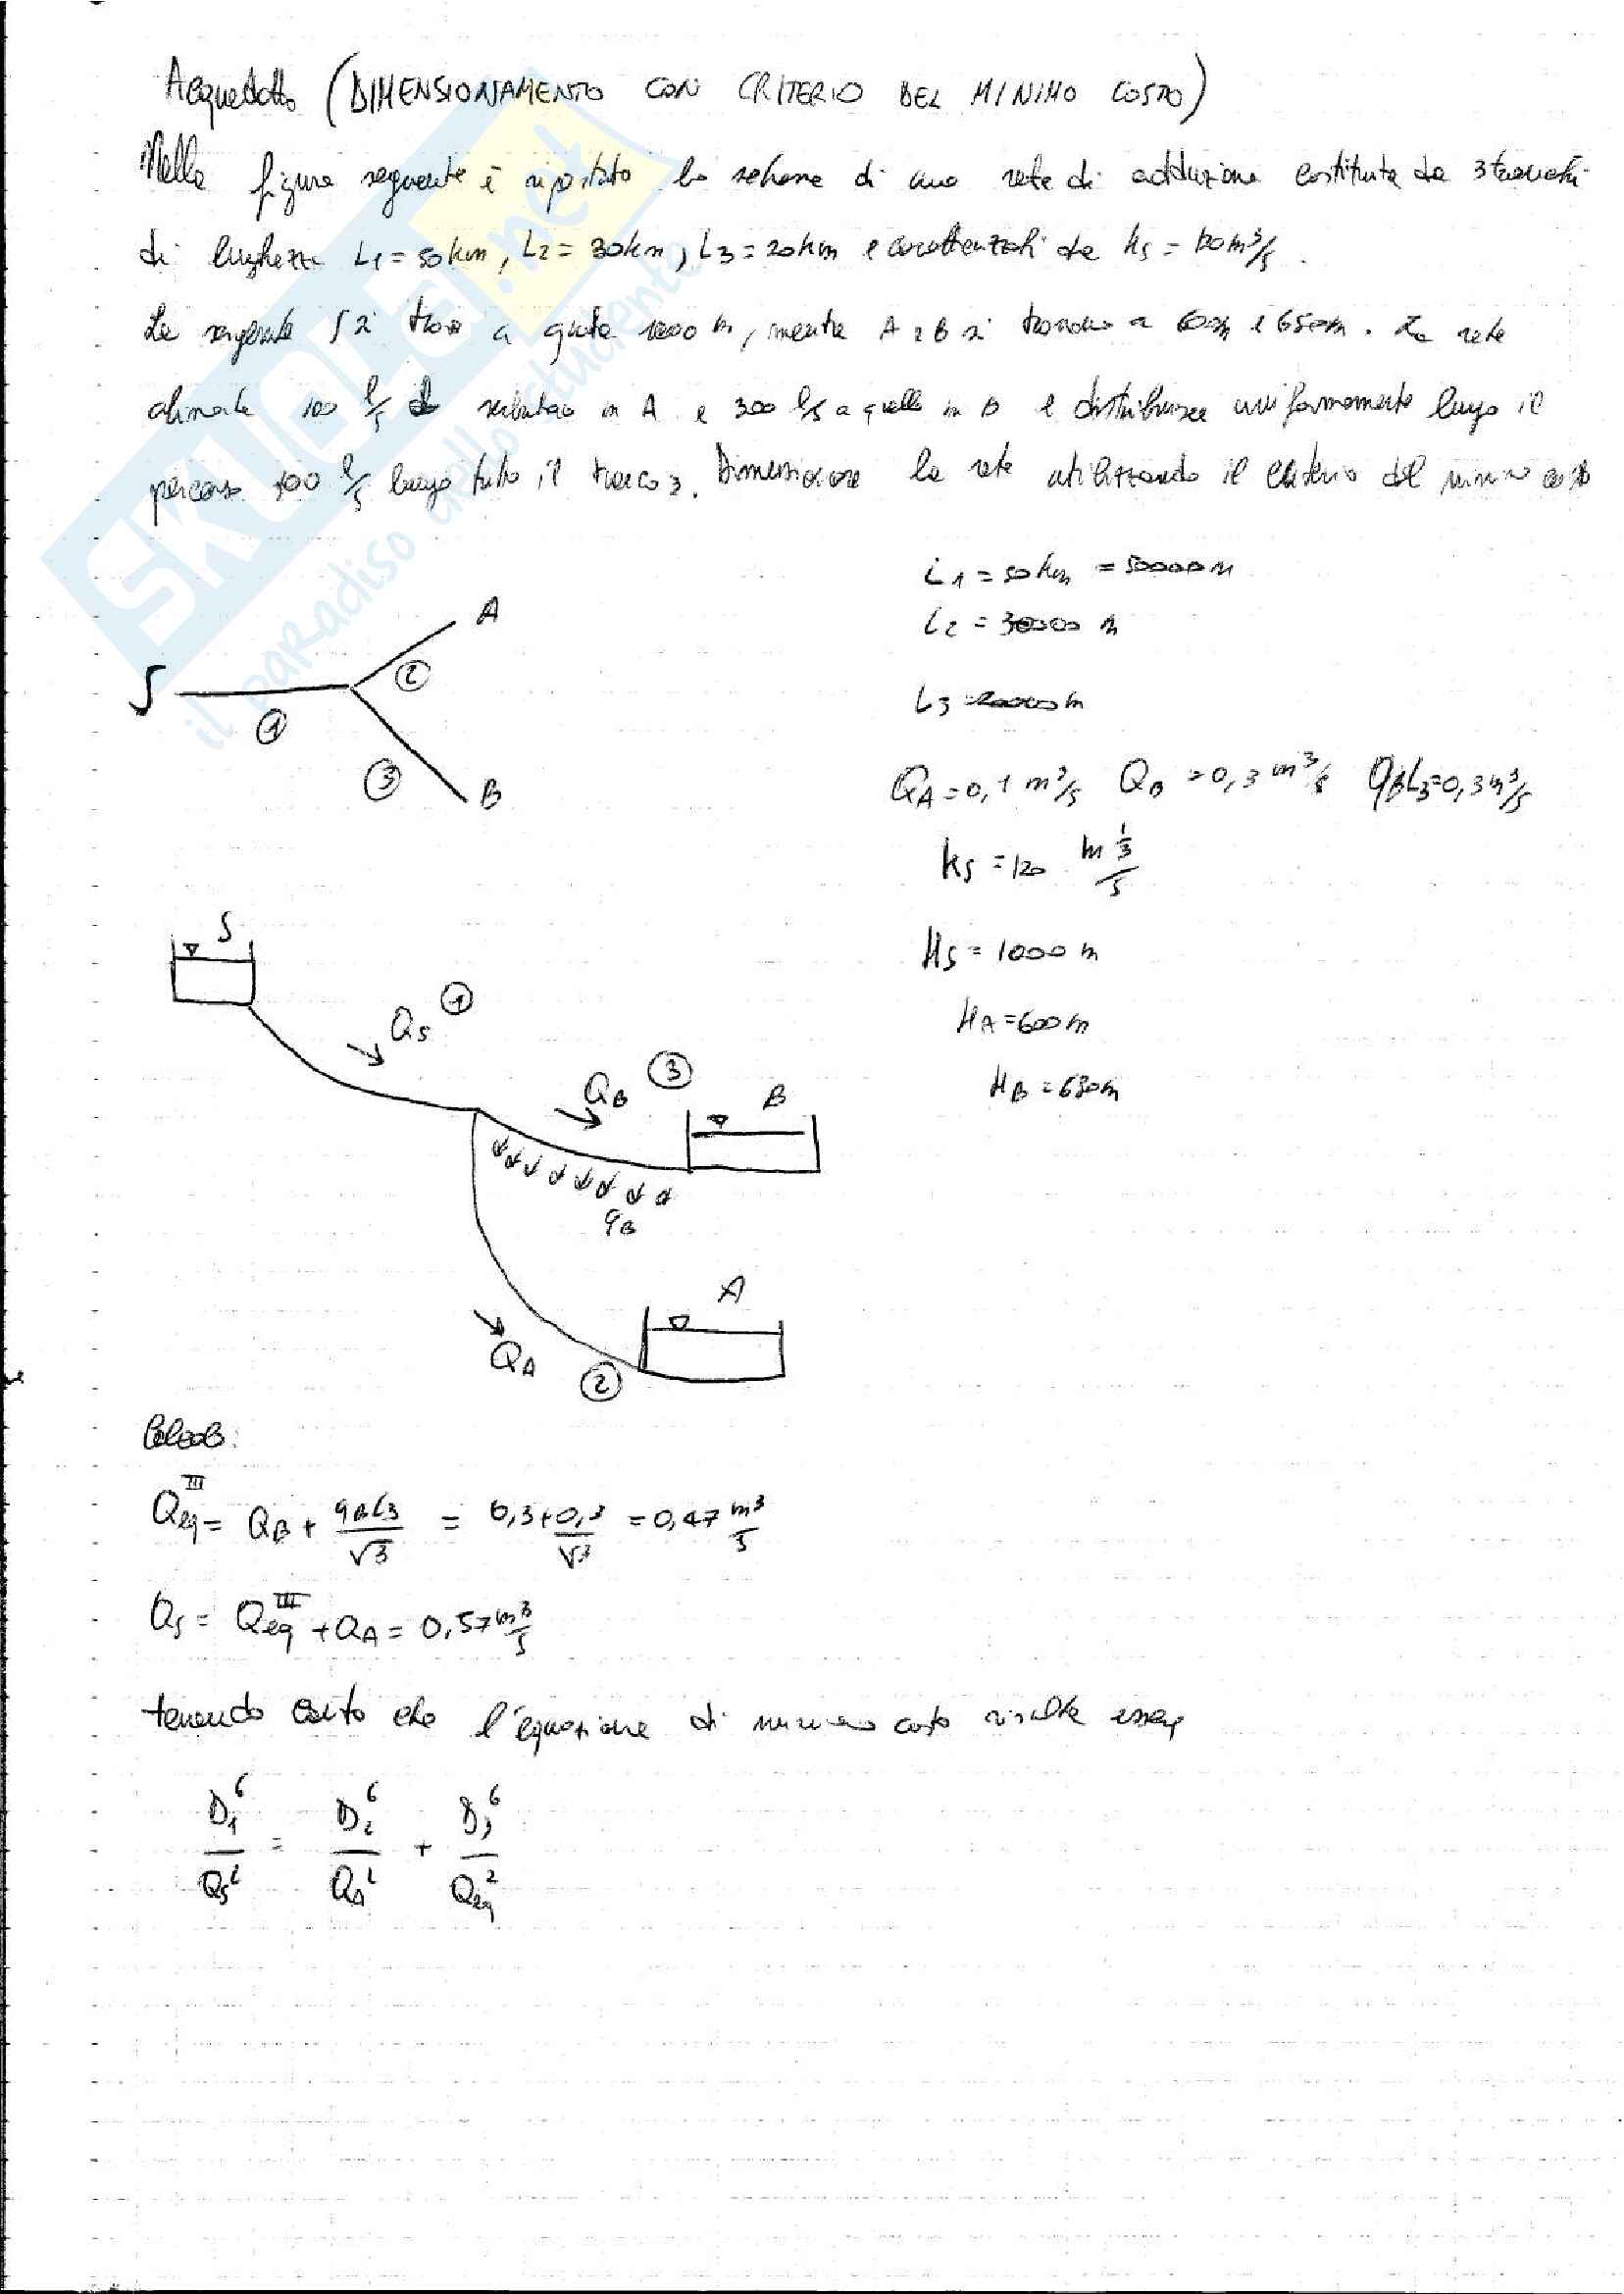 Acquedotto (DIMENSIONAMENTO CON CRITERIO DEL MINIMO COSTO)
Nella figura seguente è riportato lo schema di una rete di adduzione costituita da 3 tronchi
di lunghezza L1 = 50 km, L2 = 30 km, L3 = 20 km e caratterizzati da ks = 120 m³/s.
La sorgente S si trova a quota 1000 m, mentre A e B si trovano a 600m e 650m. La rete
alimenta 100 l/s serbatoio in A e 300 l/s a quello in B e distribuisce uniformemente lungo il
percorso 300 l/s lungo tutto il tronco 3. Dimensionare la rete utilizzando il criterio del minimo costo
L1 = 50 km = 50000 m
L2 = 30000 m
L3 = 20000 m
QA = 0,1 m³/s QB = 0,3 m³/s qBL3 = 0,3 m³/s
ks = 120 m^1/3/s
HS = 1000 m
HA = 600 m
HB = 650 m
S
1
A
2
3
B
S
QS 1
QB 3
B
qB
A
QA
2
Calcolo:
Qeq^III = QB + qBL3/√3 = 0,3 + 0,3/√3 = 0,47 m³/s
QS = Qeq^III + QA = 0,57 m³/s
tenendo conto che l'equazione di minimo costo risulta essere
D1^6/QS² = D2^6/QA² + D3^6/Qeq²
SKUOLA.net
il paradiso dello studente